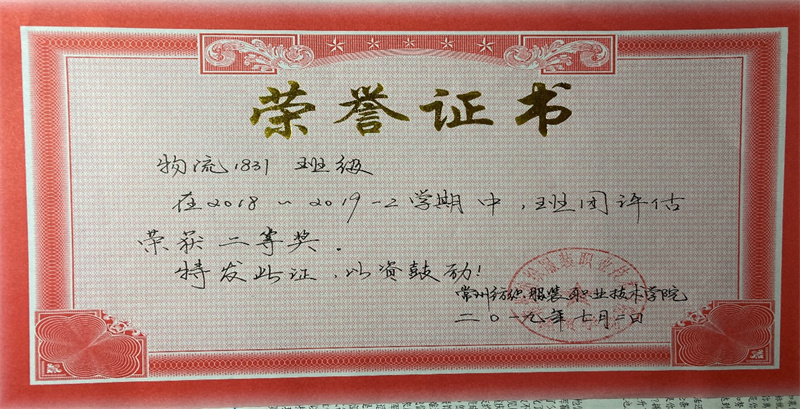 荣誉证书
物流1831 班级
在2018~2019-2学期中，班团评估
荣获二等奖．
特发此证，以资鼓励！
常州纺织服装职业技术学院
二〇一九年七月二日